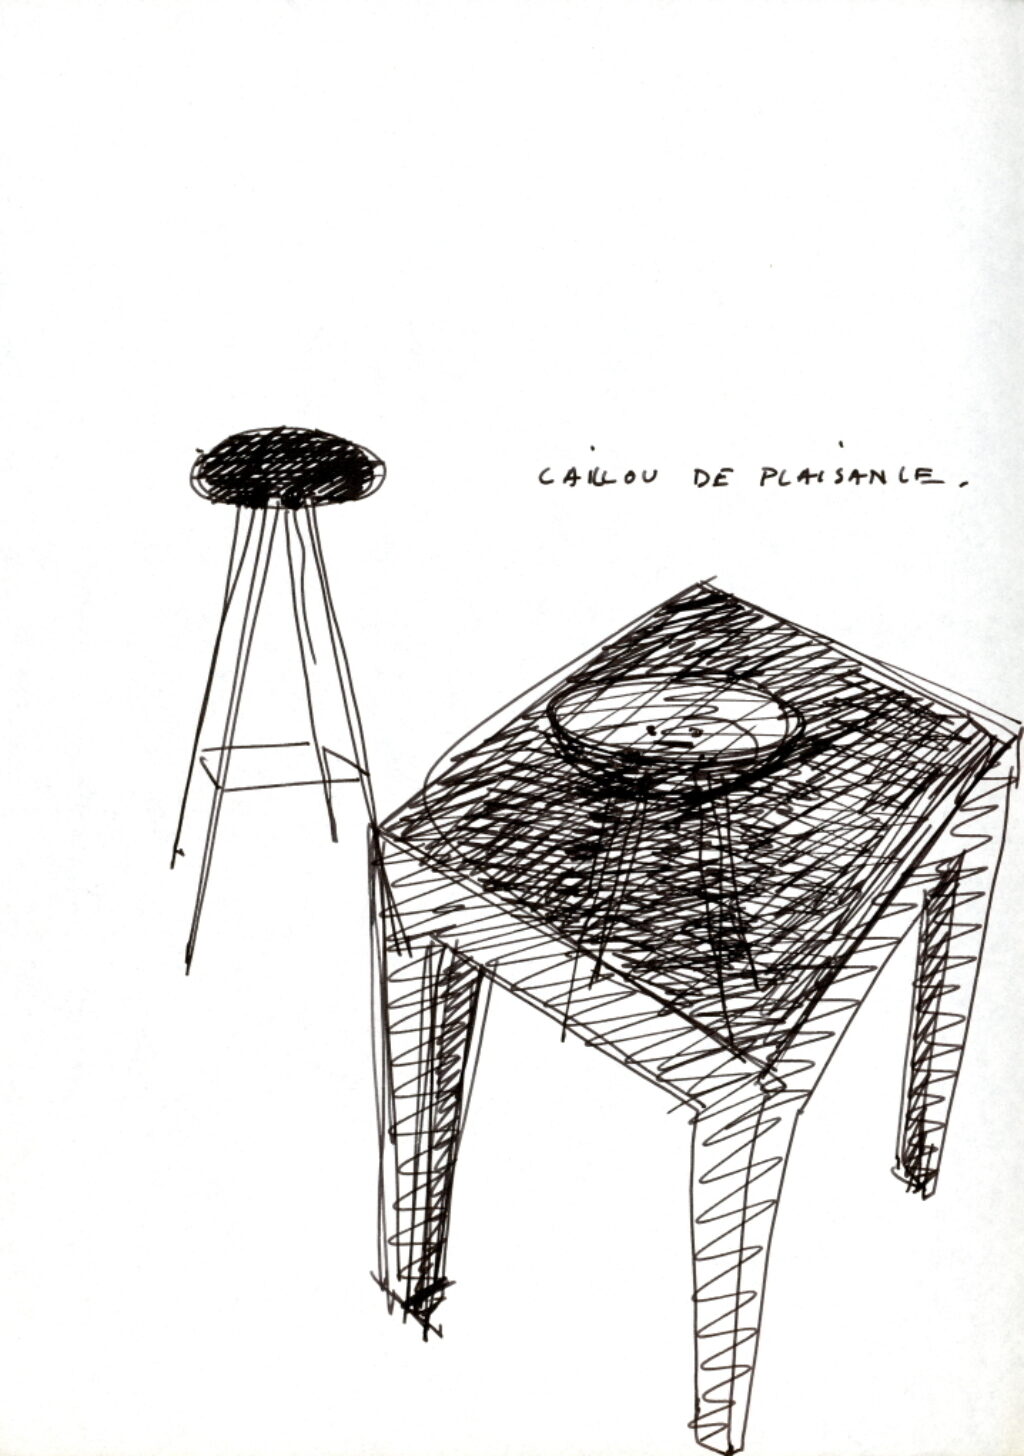 CAILLOU DE PLAISANCE.